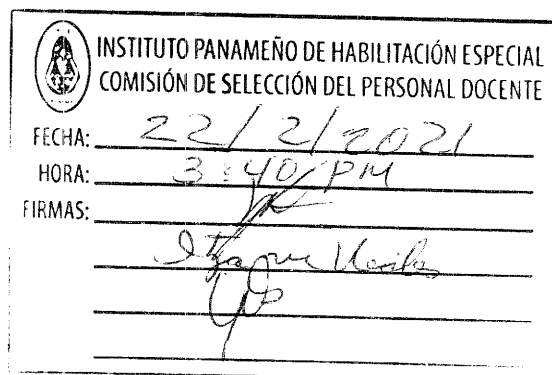 INSTITUTO PANAMEÑO DE HABILITACIÓN ESPECIAL
COMISIÓN DE SELECCIÓN DEL PERSONAL DOCENTE
FECHA: 22/2/2021
HORA: 3:40 PM
FIRMAS: